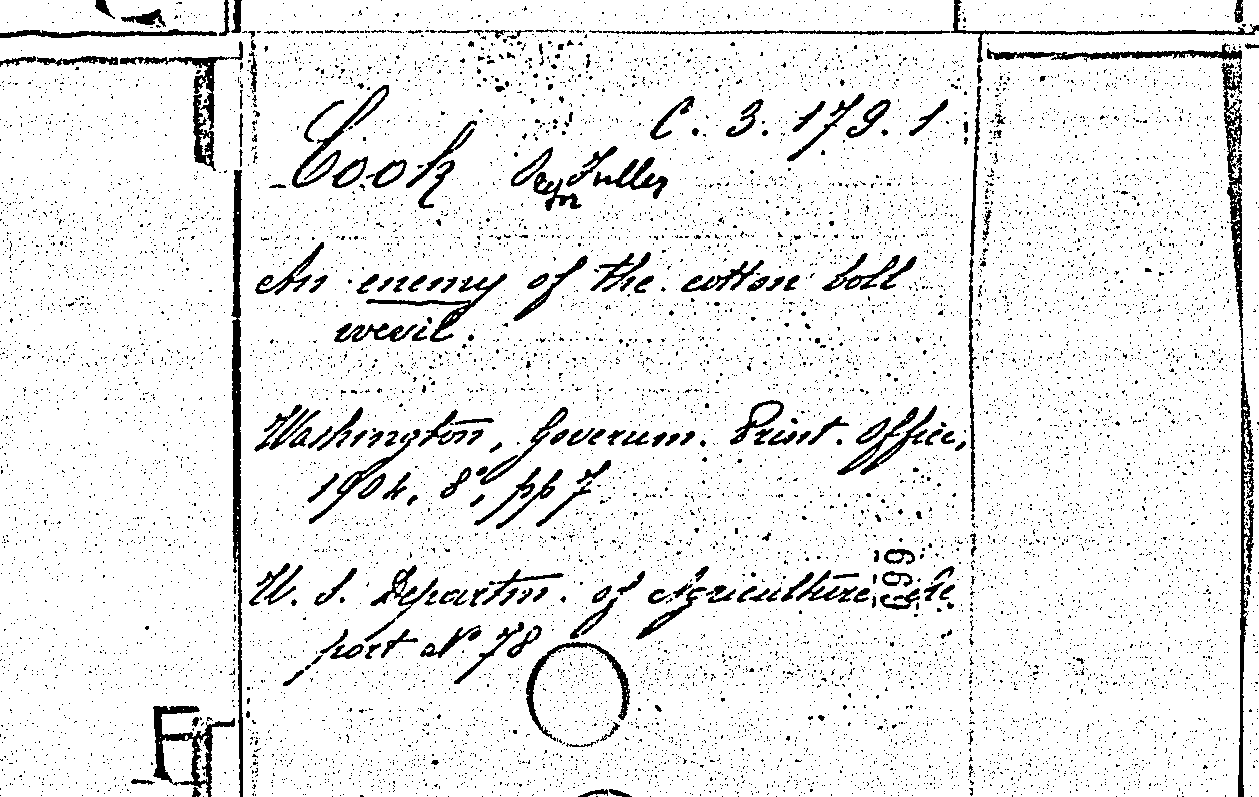 C. 3. 179. 1
Cook Fuller
An enemy of the cotton boll
wevil.
Washington, Governm. Print. Office,
1904. 8°, pp 7
U. S. Departm. of Agriculture. Re
port N° 78
699
F